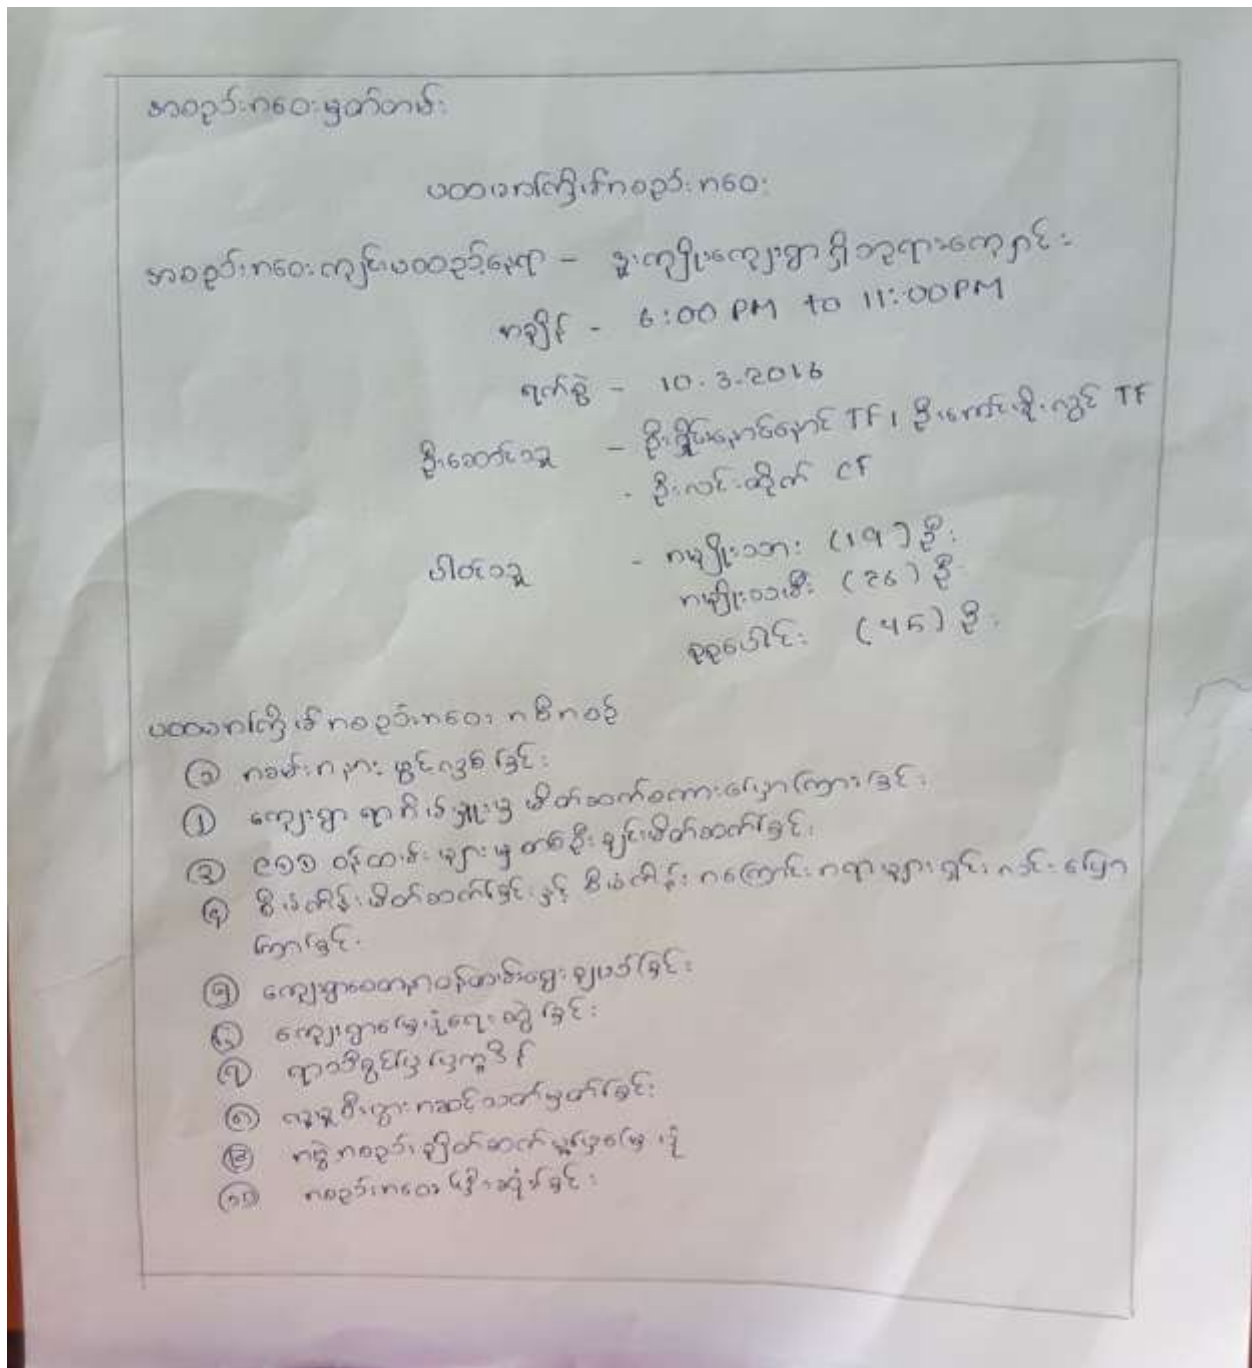 အစည်းအဝေးမှတ်တမ်း
ပထမအကြိမ်အစည်းအဝေး
အစည်းအဝေးကျင်းပတည့်နေရာ - ဘုရားကျောင်း
အချိန် - 6:00 PM to 11:00PM
ရက်စွဲ - 10.3.2016
ဦးဆောင်သူ - TF၊ TF
- ဦးလင်းထိုက် CF
ပါဝင်သူ - အမျိုးသား (19) ဦး
အမျိုးသမီး (26) ဦး
စုစုပေါင်း (45) ဦး
ပထမအကြိမ်အစည်းအဝေး အစီအစဉ်
(၁) အခမ်းအနား ဖွင့်လှစ်ခြင်း
(၂) ကျေးရွာ မှ မိတ်ဆက်စကားပြောကြားခြင်း
(၃) ဝန်ထမ်းများမှ တစ်ဦးချင်းမိတ်ဆက်ခြင်း
(၄) စီမံကိန်းမိတ်ဆက်ခြင်းနှင့် စီမံကိန်းအကြောင်းအရာများရှင်းလင်းပြော
ကြားခြင်း
(၅) ကျေးရွာစေတနာ့ဝန်ထမ်းရွေးချယ်ခြင်း
(၆) ကျေးရွာမြေပုံရေးဆွဲခြင်း
(၇) ရာသီခွင်ပြပြက္ခဒိန်
(၈) လူမှုစီးပွားအဆင့်သတ်မှတ်ခြင်း
(၉) အဖွဲ့အစည်းချိတ်ဆက်မှုပြမြေပုံ
(၁၀) အစည်းအဝေးပြီးဆုံးခြင်း